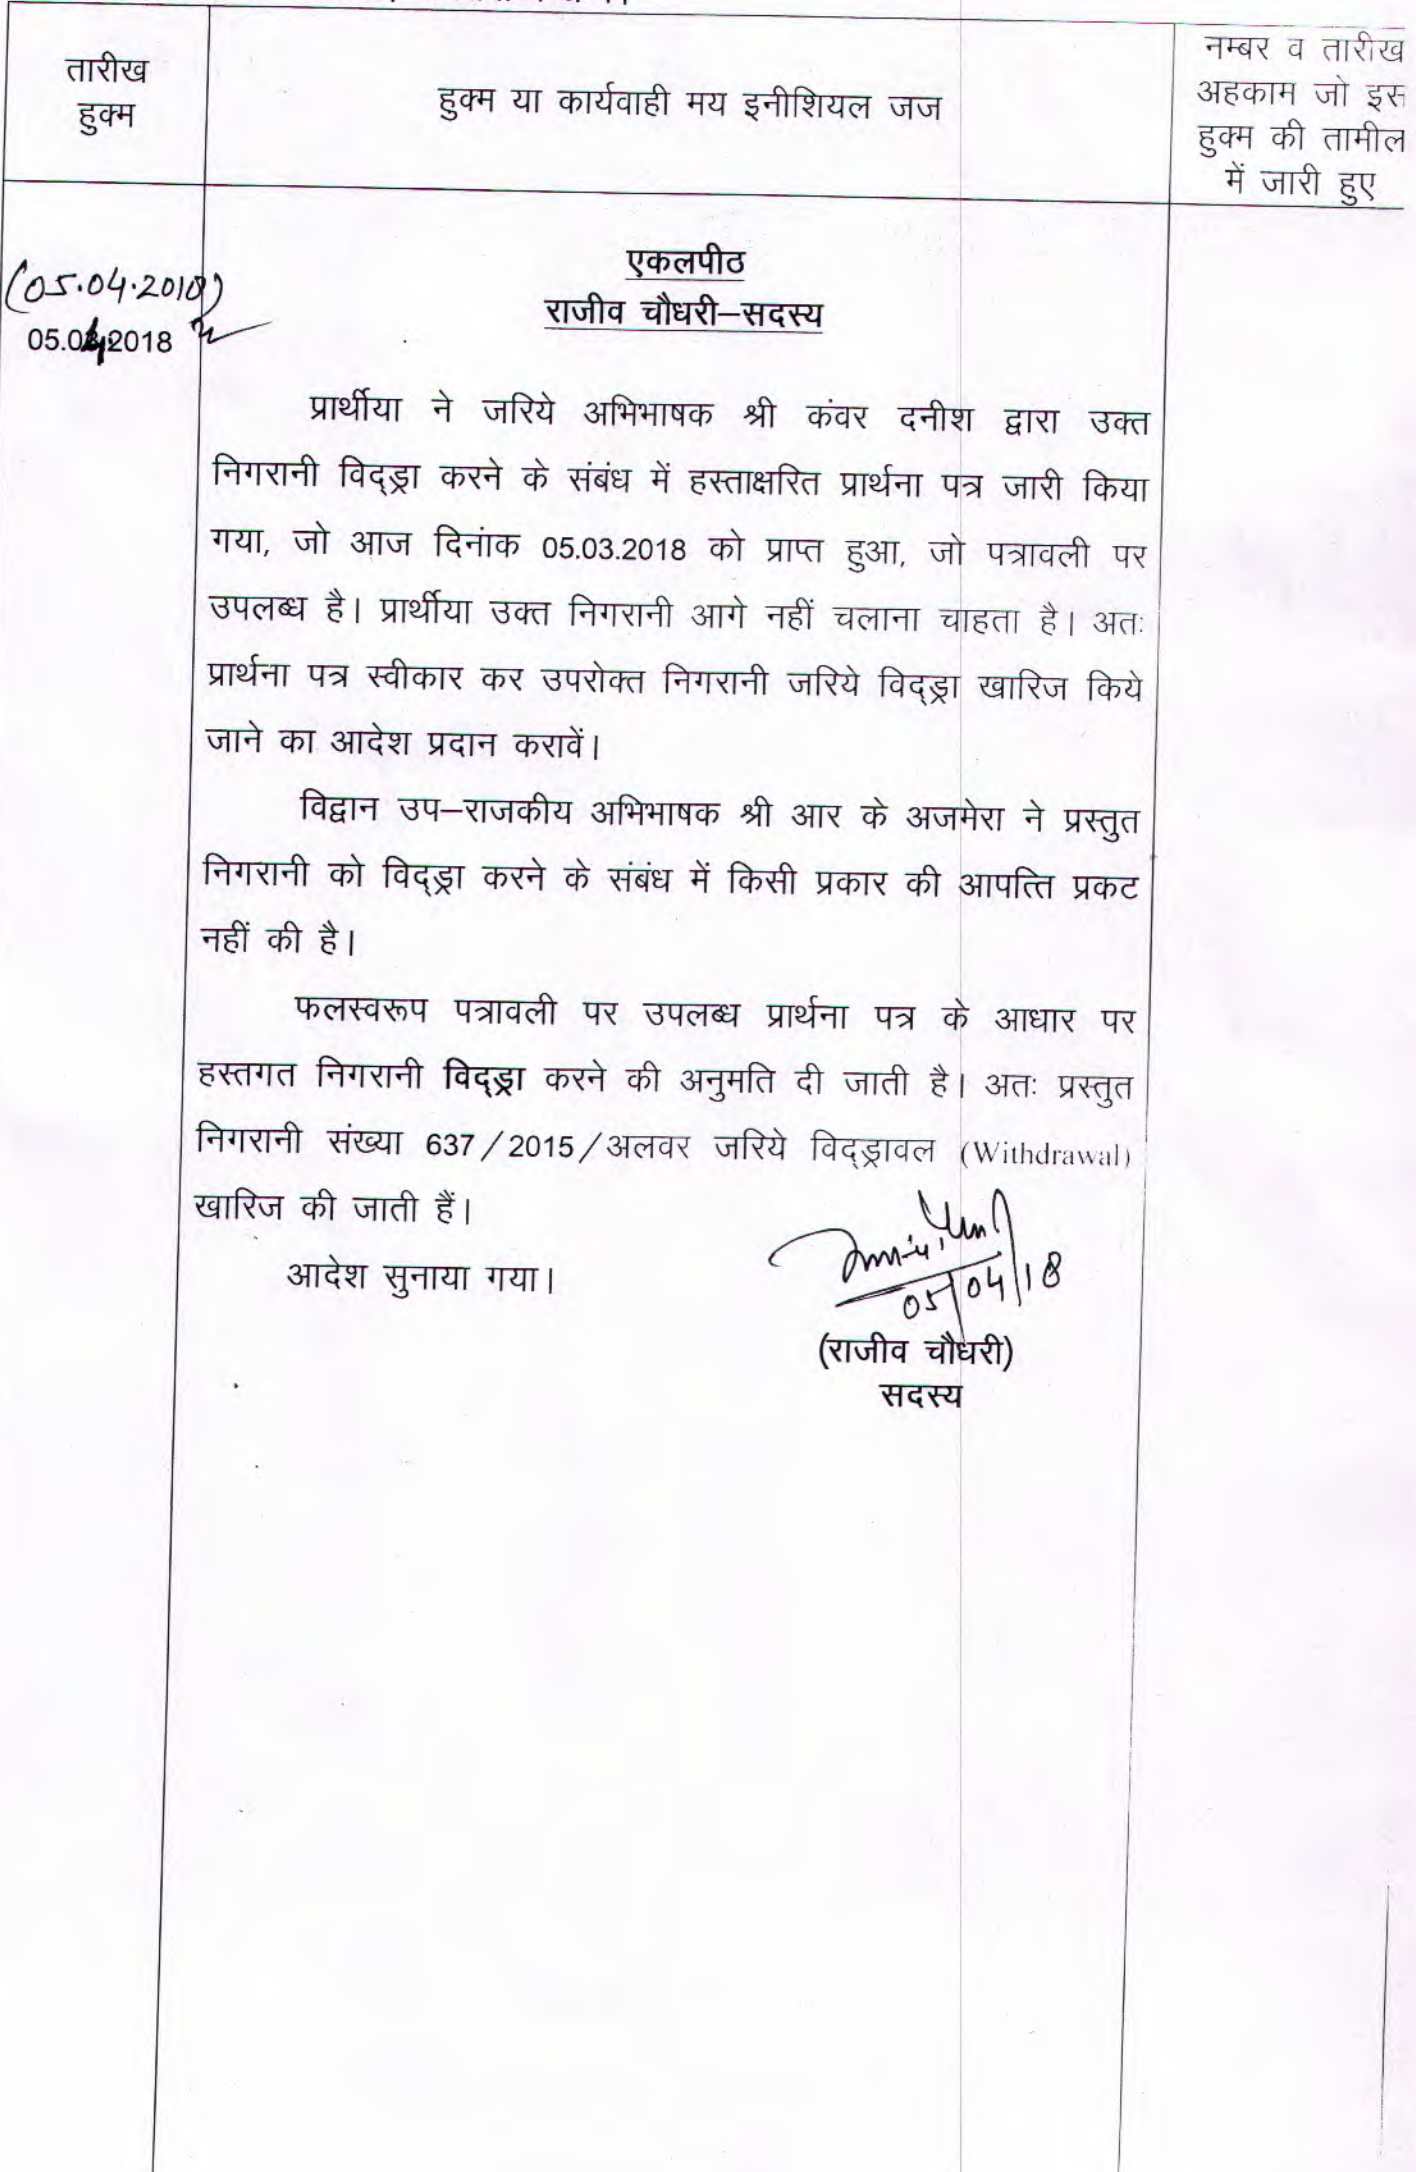 तारीख
हुक्म
हुक्म या कार्यवाही मय इनीशियल जज
नम्बर व तारीख
अहकाम जो इस
हुक्म की तामील
में जारी हुए
एकलपीठ
राजीव चौधरी–सदस्य
(05.04.2018)
05.04.2018
प्रार्थीया ने जरिये अभिभाषक श्री कंवर दनीश द्वारा उक्त
निगरानी विद्ड्रा करने के संबंध में हस्ताक्षरित प्रार्थना पत्र जारी किया
गया, जो आज दिनांक 05.03.2018 को प्राप्त हुआ, जो पत्रावली पर
उपलब्ध है। प्रार्थीया उक्त निगरानी आगे नहीं चलाना चाहता है। अतः
प्रार्थना पत्र स्वीकार कर उपरोक्त निगरानी जरिये विद्ड्रा खारिज किये
जाने का आदेश प्रदान करावें।
विद्वान उप–राजकीय अभिभाषक श्री आर के अजमेरा ने प्रस्तुत
निगरानी को विद्ड्रा करने के संबंध में किसी प्रकार की आपत्ति प्रकट
नहीं की है।
फलस्वरूप पत्रावली पर उपलब्ध प्रार्थना पत्र के आधार पर
हस्तगत निगरानी विद्ड्रा करने की अनुमति दी जाती है। अतः प्रस्तुत
निगरानी संख्या 637/2015/अलवर जरिये विद्ड्रावल (Withdrawal)
खारिज की जाती हैं।
आदेश सुनाया गया।
05/04/18
(राजीव चौधरी)
सदस्य